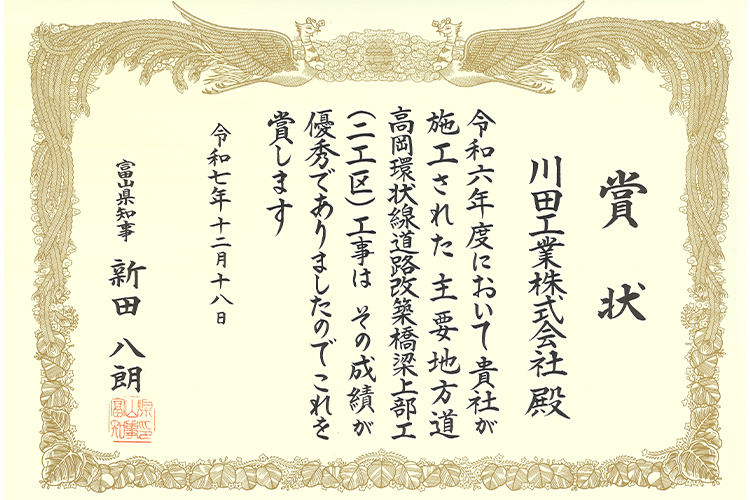 賞状
川田工業株式会社 殿
令和六年度において貴社が
施工された 主要地方道
高岡環状線道路改築橋梁上部工
(二工区)工事は その成績が
優秀でありましたのでこれを
賞します
令和七年十二月十八日
富山県知事 新田 八朗
富山県知事印